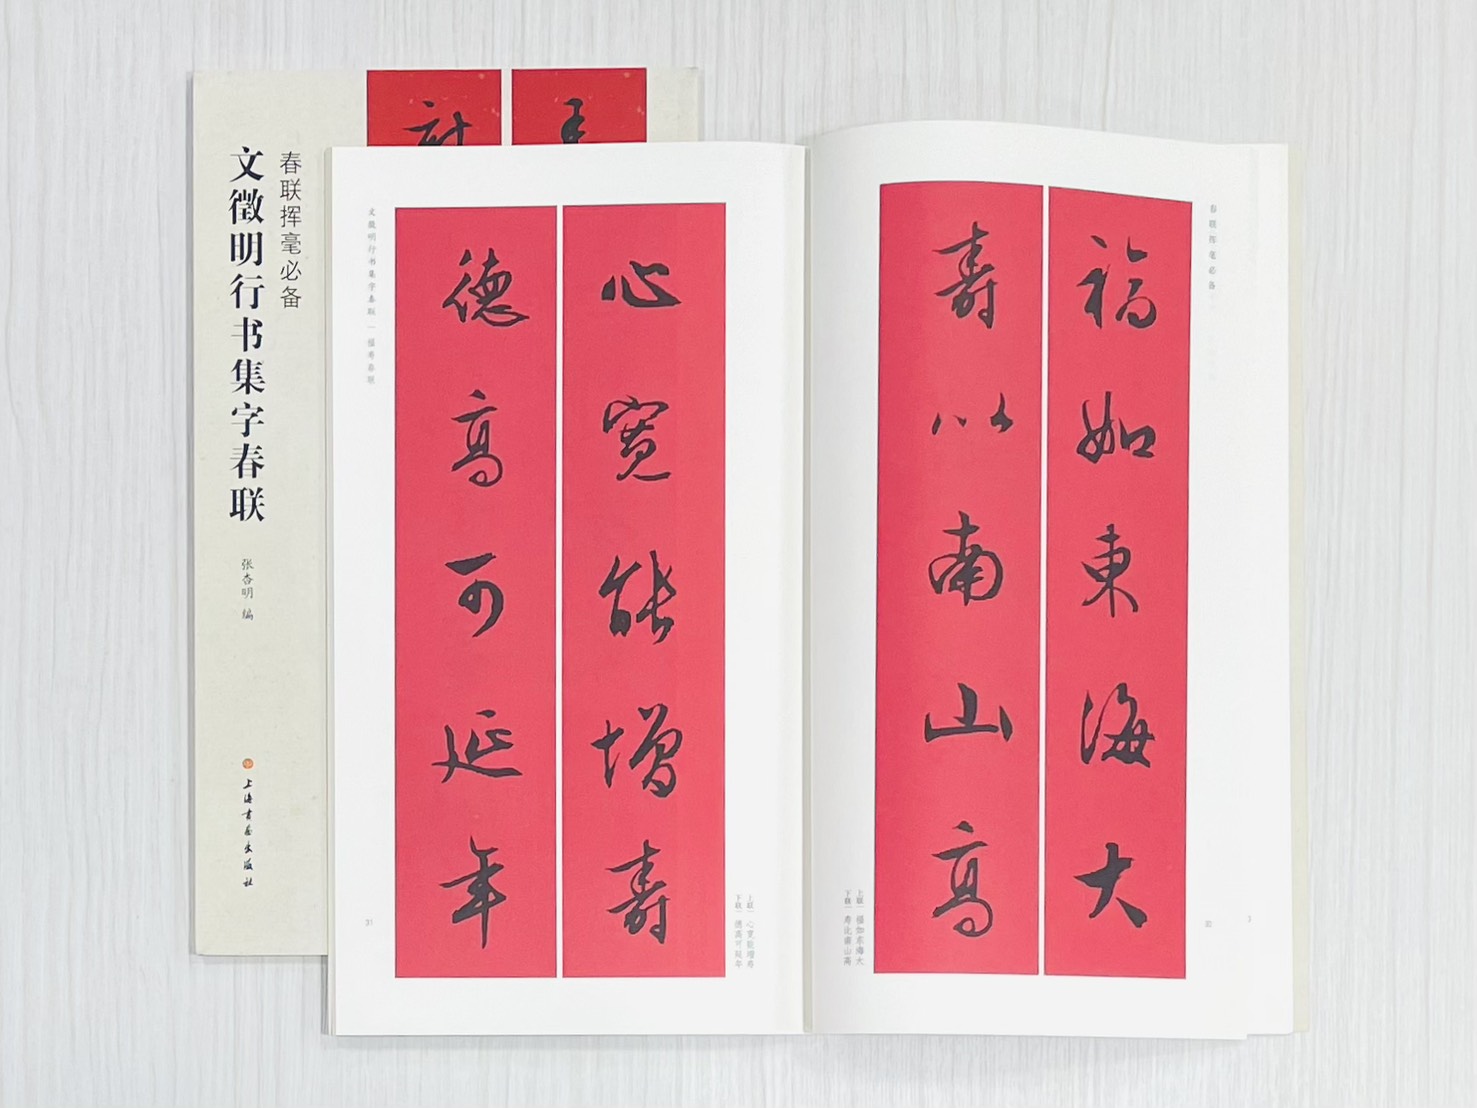 春联挥毫必备
文徵明行书集字春联
张杏明 编
上海书画出版社
春联挥毫必备
福如东海大
寿以南山高
上联 福如东海大
下联 寿比南山高
心寬能增壽
德高可延年
上联 心宽能增寿
下联 德高可延年
文徵明行书集字春联 福寿春联
31